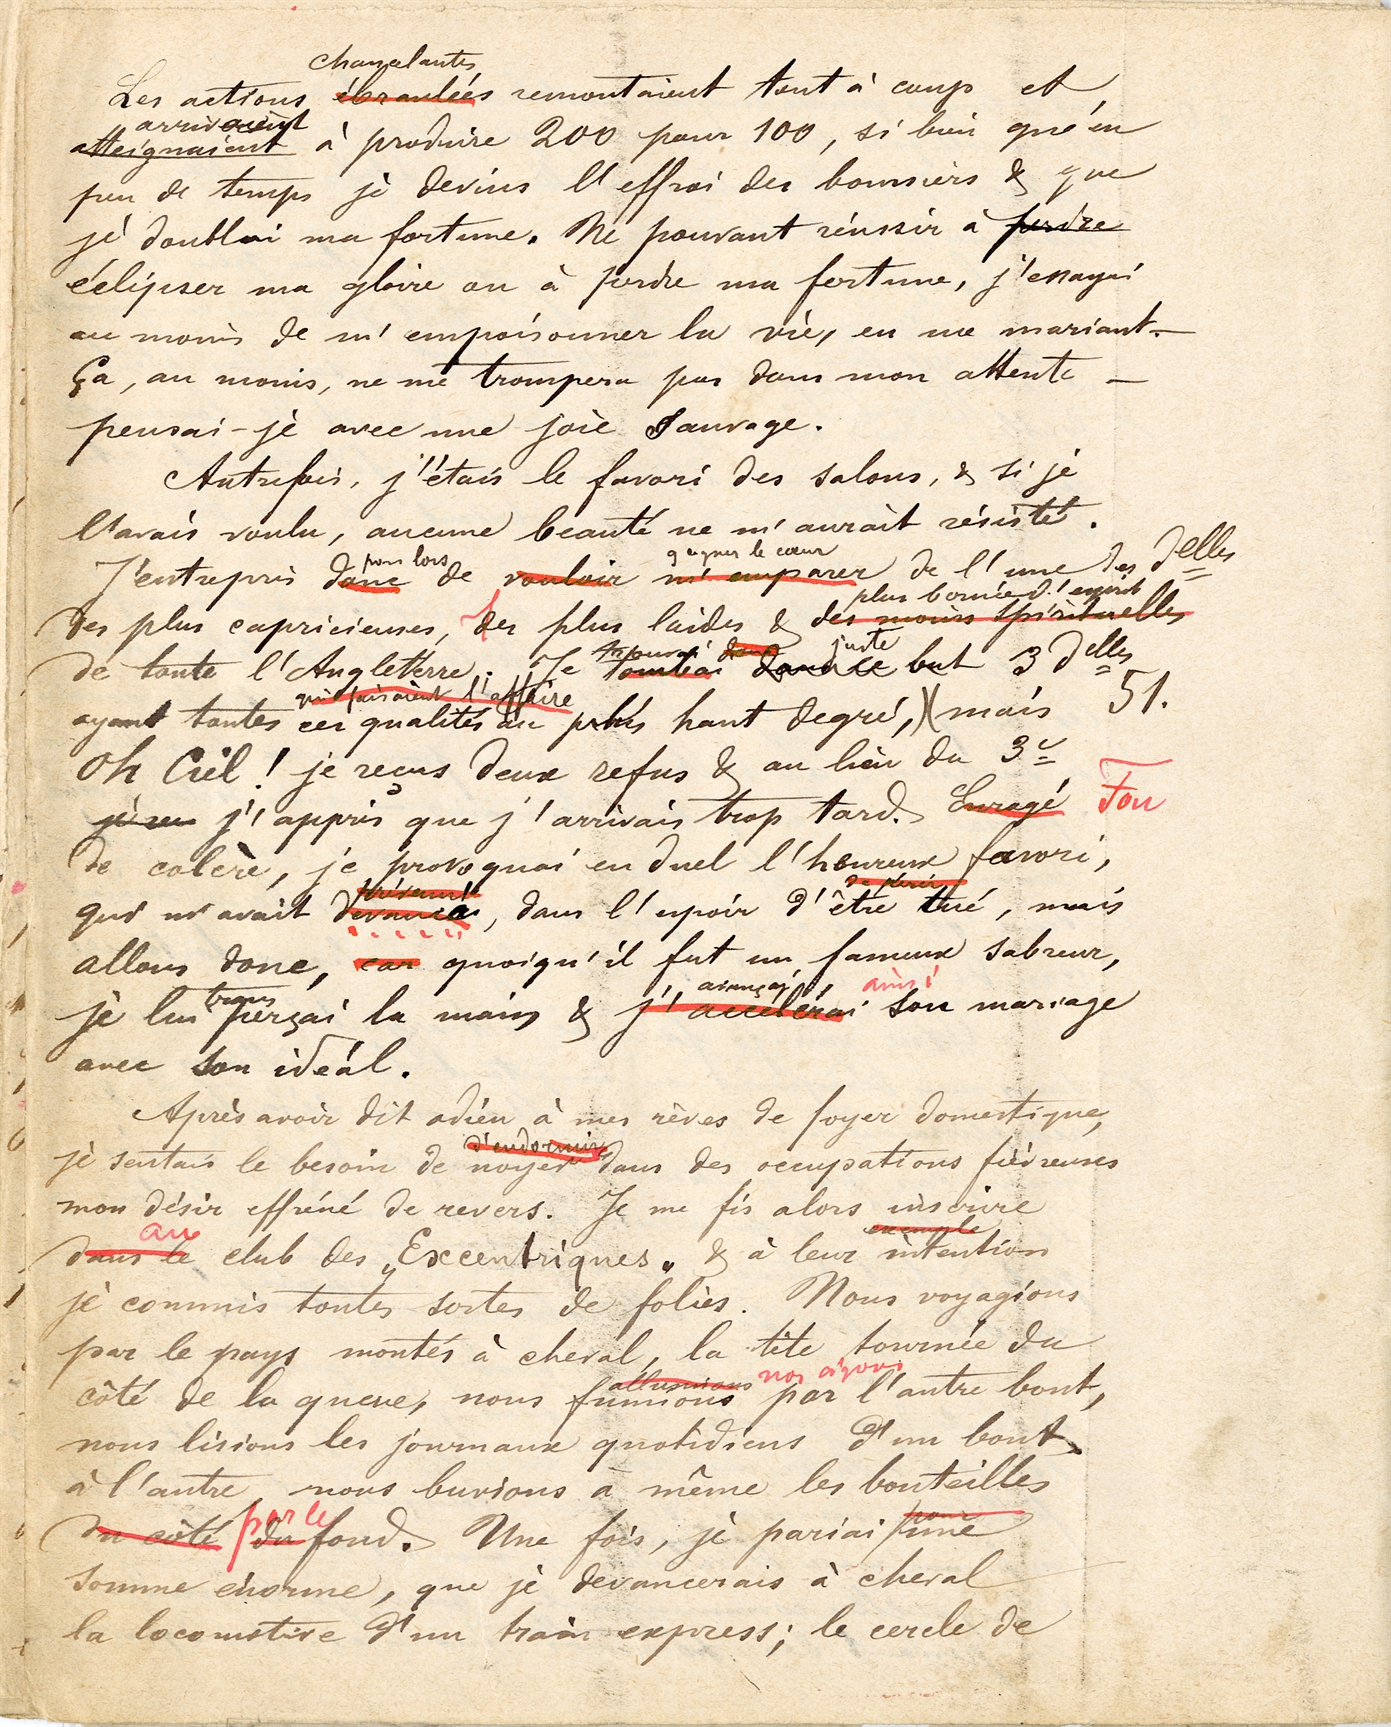 chancelantes
Les actions ébranlées remontaient tout à coup et
arrivaient
atteignaient à produire 200 pour 100, si bien qu'en
peu de temps je devins l'effroi des boursiers & que
je doublai ma fortune. Ne pouvant réussir à perdre
éclipser ma gloire ou à perdre ma fortune, j'essayai
au moins de m'empoisonner la vie, en me mariant.—
Ça, au moins, ne me trompera pas dans mon attente —
pensai-je avec une joie sauvage.
Autrefois, j'étais le favori des salons, & si je
l'avais voulu, aucune beauté ne m'aurait résisté.
pour lors gagner le cœur
J'entrepris donc de vouloir m'emparer de l'une des Delles
plus bornée d'esprit
des plus capricieuses, des plus laides & des moins spirituelles
trouvai dans juste
de toute l'Angleterre. Je tombai but 3 Delles
qui faisaient l'affaire
ayant toutes ces qualités au plus haut degré, mais 51.
Oh Ciel! je reçus deux refus & au lieu du 3e
je j'appris que j'arrivais trop tard. Enragé Fou
de colère, je provoquai en duel l'heureux favori,
prévenu de périr
qui m'avait devancé, dans l'espoir d'être tué, mais
allons donc, car quoiqu'il fut un fameux sabreur,
trans avançai ainsi
je lui perçai la main & j'accélérai son mariage
avec son idéal.
Après avoir dit adieu à mes rêves de foyer domestique,
d'endormir
je sentais le besoin de noyer dans des occupations fiévreuses
mon désir effréné de revers. Je me fis alors inscrire
au exemple
dans le club des „Excentriques„ & à leur intention
je commis toutes sortes de folies. Nous voyagions
par le pays montés à cheval, la tête tournée du
allumions nos cigares
côté de la queue, nous fumions par l'autre bout,
nous lisions les journaux quotidiens d'un bout
à l'autre, nous buvions à même les bouteilles
par le pour
du côté du fond. Une fois, je pariai une
somme énorme, que je devancerais à cheval
la locomotive d'un train express; le cercle de